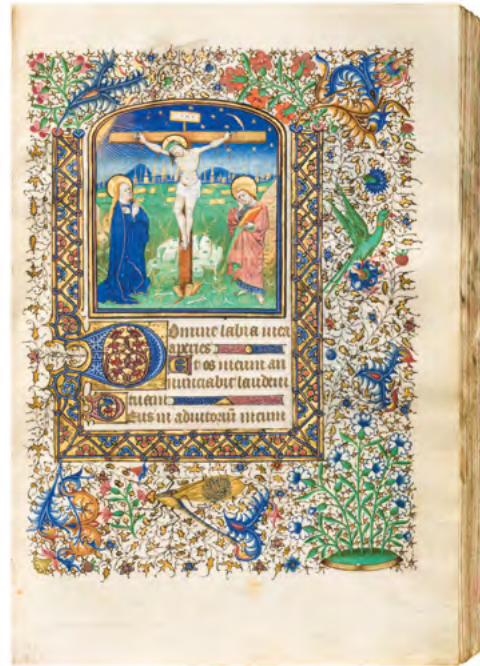 Domine labia mea
aperies
Et os meum an
nunciabit laudem
tuam
Deus in adiutoriū meum